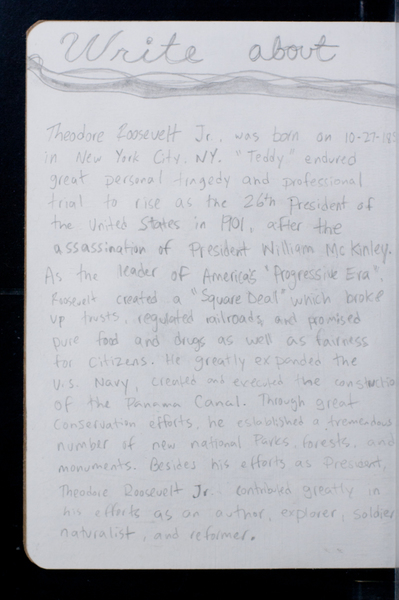 Write about
Theodore Roosevelt Jr. was born on 10-27-185
in New York City, NY. "Teddy" endured
great personal tragedy and professional
trial to rise as the 26th President of
the United States in 1901, after the
assassination of President William McKinley.
As the leader of America's "Progressive Era",
Roosevelt created a "Square Deal" which broke
up trusts, regulated railroads, and promised
pure food and drugs as well as fairness
for citizens. He greatly expanded the
U.S. Navy, created and executed the constructio
of the Panama Canal. Through great
conservation efforts, he established a tremendous
number of new national Parks, forests, and
monuments. Besides his efforts as President,
Theodore Roosevelt Jr. contributed greatly in
his efforts as an author, explorer, soldier
naturalist, and reformer.